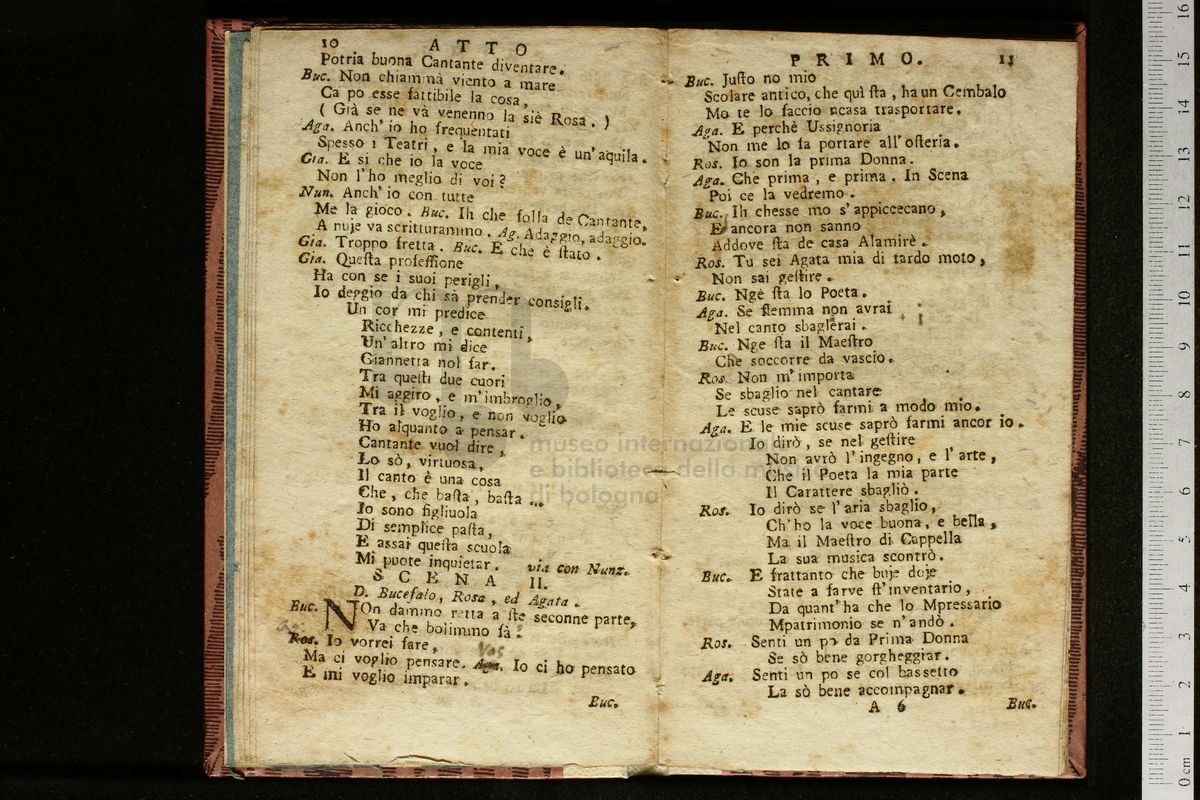 10 ATTO
Potria buona Cantante diventare.
Buc. Non chiammà viento a mare
Ca po esse fattibile la cosa,
( Già se ne và venenno la siè Rosa. )
Aga. Anch' io ho frequentati
Spesso i Teatri, e la mia voce è un' aquila.
Gia. E si che io la voce
Non l' ho meglio di voi?
Nun. Anch' io con tutte
Me la gioco. Buc. Ih che folla de Cantante,
A nuje va scritturammo. Ag. Adaggio, adaggio.
Gia. Troppo fretta. Buc. E che è stato.
Gia. Questa professione
Ha con se i suoi perigli,
Io deggio da chi sà prender consigli.
Un cor mi predice
Ricchezze, e contenti,
Un' altro mi dice
Giannetta nol far.
Tra questi due cuori
Mi aggiro, e m' imbroglio,
Tra il voglio, e non voglio
Ho alquanto a pensar.
Cantante vuol dire,
Lo sò, virtuosa,
Il canto è una cosa
Che, che basta, basta ...
Io sono figliuola
Di semplice pasta,
E assai questa scuola
Mi puote inquietar. via con Nunz.
SCENA II.
D. Bucefalo, Rosa, ed Agata.
Buc. NOn dammo retta a ste seconne parte,
Va che bolimmo fà?
Ros. Io vorrei fare,
Ma ci voglio pensare. Aga. Io ci ho pensato
E mi voglio imparar.
Buc.
PRIMO. 11
Buc. Justo no mio
Scolare antico, che quì sta, ha un Cembalo
Mo te lo faccio ncasa trasportare.
Aga. E perchè Ussignoria
Non me lo fa portare all' osteria.
Ros. Io son la prima Donna.
Aga. Che prima, e prima. In Scena
Poi ce la vedremo.
Buc. Ih chesse mo s' appiccecano,
E ancora non sanno
Addove sta de casa Alamirè.
Ros. Tu sei Agata mia di tardo moto,
Non sai gestire.
Buc. Ngè sta lo Poeta.
Aga. Se flemma non avrai
Nel canto sbaglerai.
Buc. Nge sta il Maestro
Che soccorre da vascio.
Ros. Non m' importa
Se sbaglio nel cantare
Le scuse saprò farmi a modo mio.
Aga. E le mie scuse saprò farmi ancor io.
Io dirò, se nel gestire
Non avrò l' ingegno, e l' arte,
Che il Poeta la mia parte
Il Carattere sbagliò.
Ros. Io dirò se l' aria sbaglio,
Ch' ho la voce buona, e bella,
Ma il Maestro di Cappella
La sua musica scontrò.
Buc. E frattanto che buje doje
State a farve st' inventario,
Da quant' ha che lo Mpressario
Mpatrimonio se n' andò.
Ros. Senti un po da Prima Donna
Se sò bene gorgheggiar.
Aga. Senti un po se col bassetto
La sò bene accompagnar.
A 6 Buc.
museo internazionale
e biblioteca della musica
di bologna
16
15
14
13
12
11
10
9
8
7
6
5
4
3
2
1
0 cm